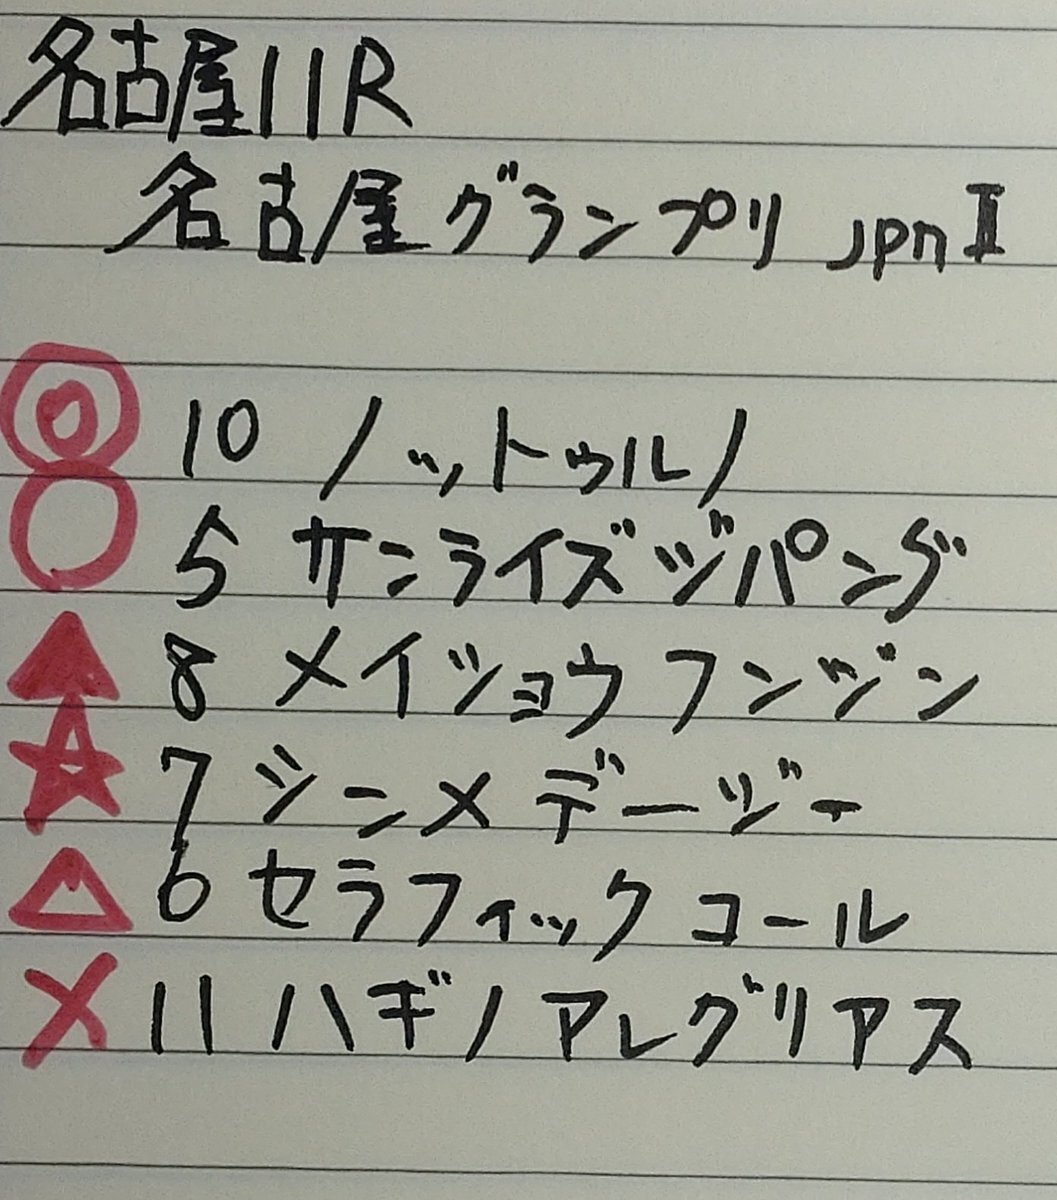 名古屋11R
名古屋グランプリ JpnⅡ
◎ 10 ノットゥルノ
○ 5 サンライズジパング
▲ 8 メイショウフンジン
☆ 7 シンメデージー
△ 6 セラフィックコール
× 11 ハギノアレグリアス